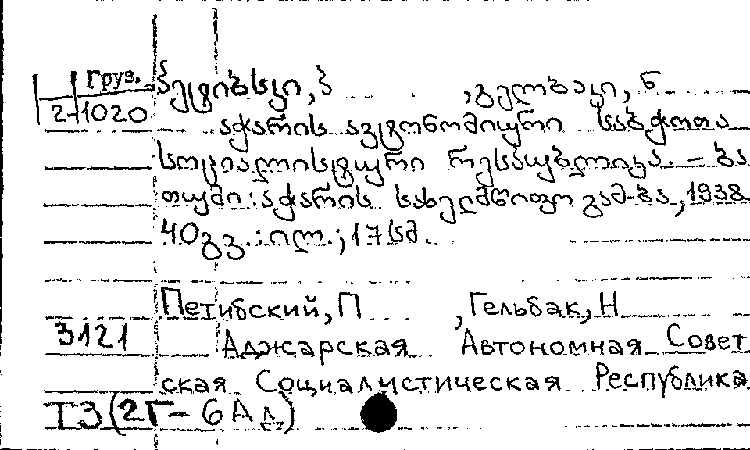 Груз.
პეტიბსკი, პ , გელბაკი, ნ
2-1020
აჭარის ავტონომიური საბჭოთა
სოციალისტური რესპუბლიკა. – ბა
თუმი : აჭარის სახელმწიფო გამ-ბა, 1938
40გვ. : ილ. ; 17სმ.
Петибский, П , Гельбак, Н
3121
Аджарская Автономная Совет
ская Социалистическая Республика
ТЗ(2Г–6Ад)